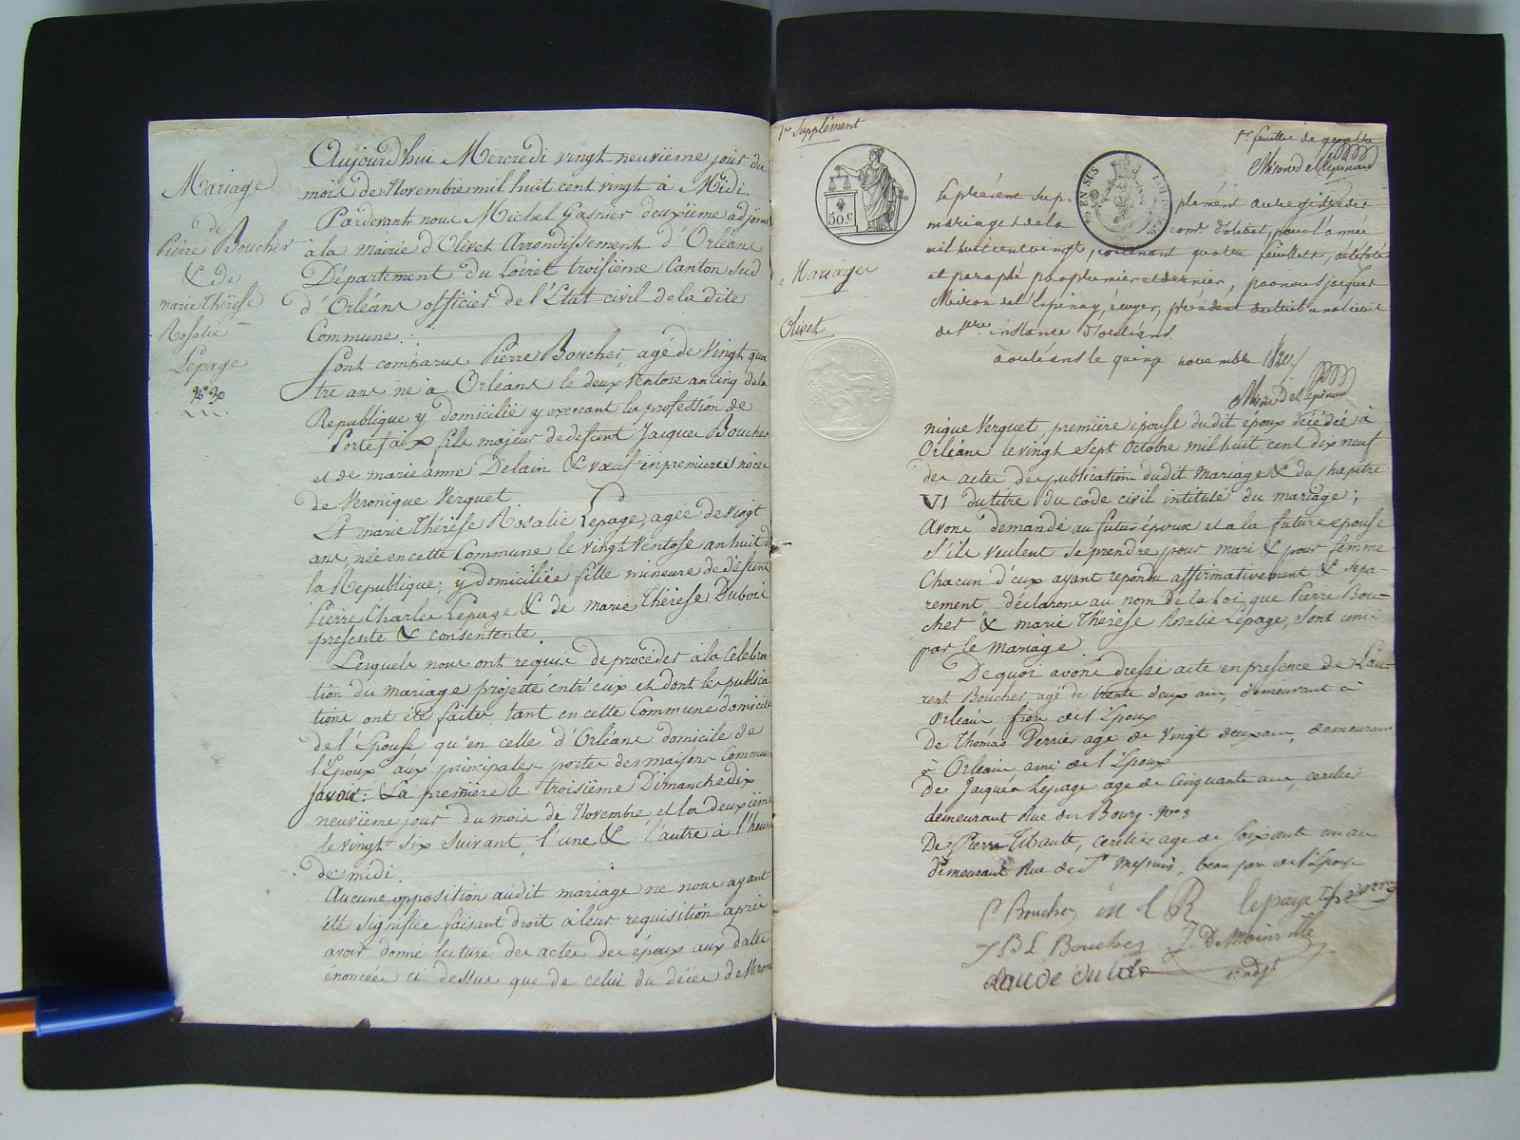 Mariage
de
Pierre Boucher
& de
marie Thérèse
Rosalie
Lepage
Aujourd'hui Mercredi vingt neuvième jour du
mois de Novembre mil huit cent vingt à Midi.
Pardevant nous Michel Gasnier deuxième adjoint
à la mairie d'Olivet Arrondissement d'Orléans
Département du Loiret troisième Canton Sud
d'Orléans officier de l'Etat civil de la dite
Commune.
Sont comparus Pierre Boucher agé de Vingt qua
tre ans né à Orléans le deux Ventose an cinq de la
Republique y domicilié y exercant la profession de
Portefaix fils majeur de defunt Jacques Boucher
et de marie anne Delain & vœuf en premieres noces
de Veronique Verquet
Et marie Thérèse Rosalie Lepage, agée de vingt
ans née en cette Commune le vingt Ventose an huit d
la Republique; y domiciliée fille mineure de défunt
Pierre Charles Lepage & de marie Thérèse Dubois
presente & consentente.
Lesquels nous ont requis de procéder à la Celebra
tion du mariage projetté entr'eux et dont les publica
tions ont été faites, tant en cette Commune domicile
de l'Epouse qu'en celle d'Orléans domicile de
l'Epoux aux principales portes des maisons Commun
savoir: La première le troisième Dimanche dix
neuvième jour du mois de Novembre et la deuxième
le vingt six suivant, l'une & l'autre à l'heure
de midi.
Aucune opposition audit mariage ne nous ayant
été signifiée faisant droit à leur requisition après
avoir donné lecture des actes des époux aux dates
énoncées ci dessus que de celui du décès de Véro
1er Supplément
1re feuille
50 c.
EN SUS
Le présent sup- plément au registre des
mariages de la com: d'olivet, pour l'année
mil huit cent vingt, contenant quatre feuillets, a été coté
et paraphé par premier et dernier, par nous Jacques
Miron de l'Epinay, écuyer, président
de 1ere instance d'orléans
à orléans le quinze novembre 1820
Mariage
Olivet
nique Verquet première épouse dudit époux décédée à
Orléans le vingt sept Octobre mil huit cent dix neuf
des actes de publication dudit Mariage & du chapitre
VI du titre du code civil intitulé du mariage;
Avons demandé au futur époux et a la future épouse
s'ils veulent se prendre pour mari & pour femme
Chacun d'eux ayant repondu affirmativement & sepa-
rement, déclarons au nom de la Loi, que Pierre Bou-
cher & marie Thérèse Rosalie Lepage, sont unis
par le mariage.
De quoi avons dressé acte en presence de Lau-
rent Boucher agé de trente deux ans, demeurant à
Orléans frère de l'Epoux
De Thomas Perrié agé de vingt deux ans, demeurant
à Orléans ami de l'Epoux
de Jacques Lepage agé de Cinquante ans, cerclier
demeurant Rue du Bourg
De Pierre Thibault, cerclier agé de soixante un an
demeurant Rue de St Mesmin, beau de l'Epouse
P Boucher
Lepage
J B L Boucher
adjt